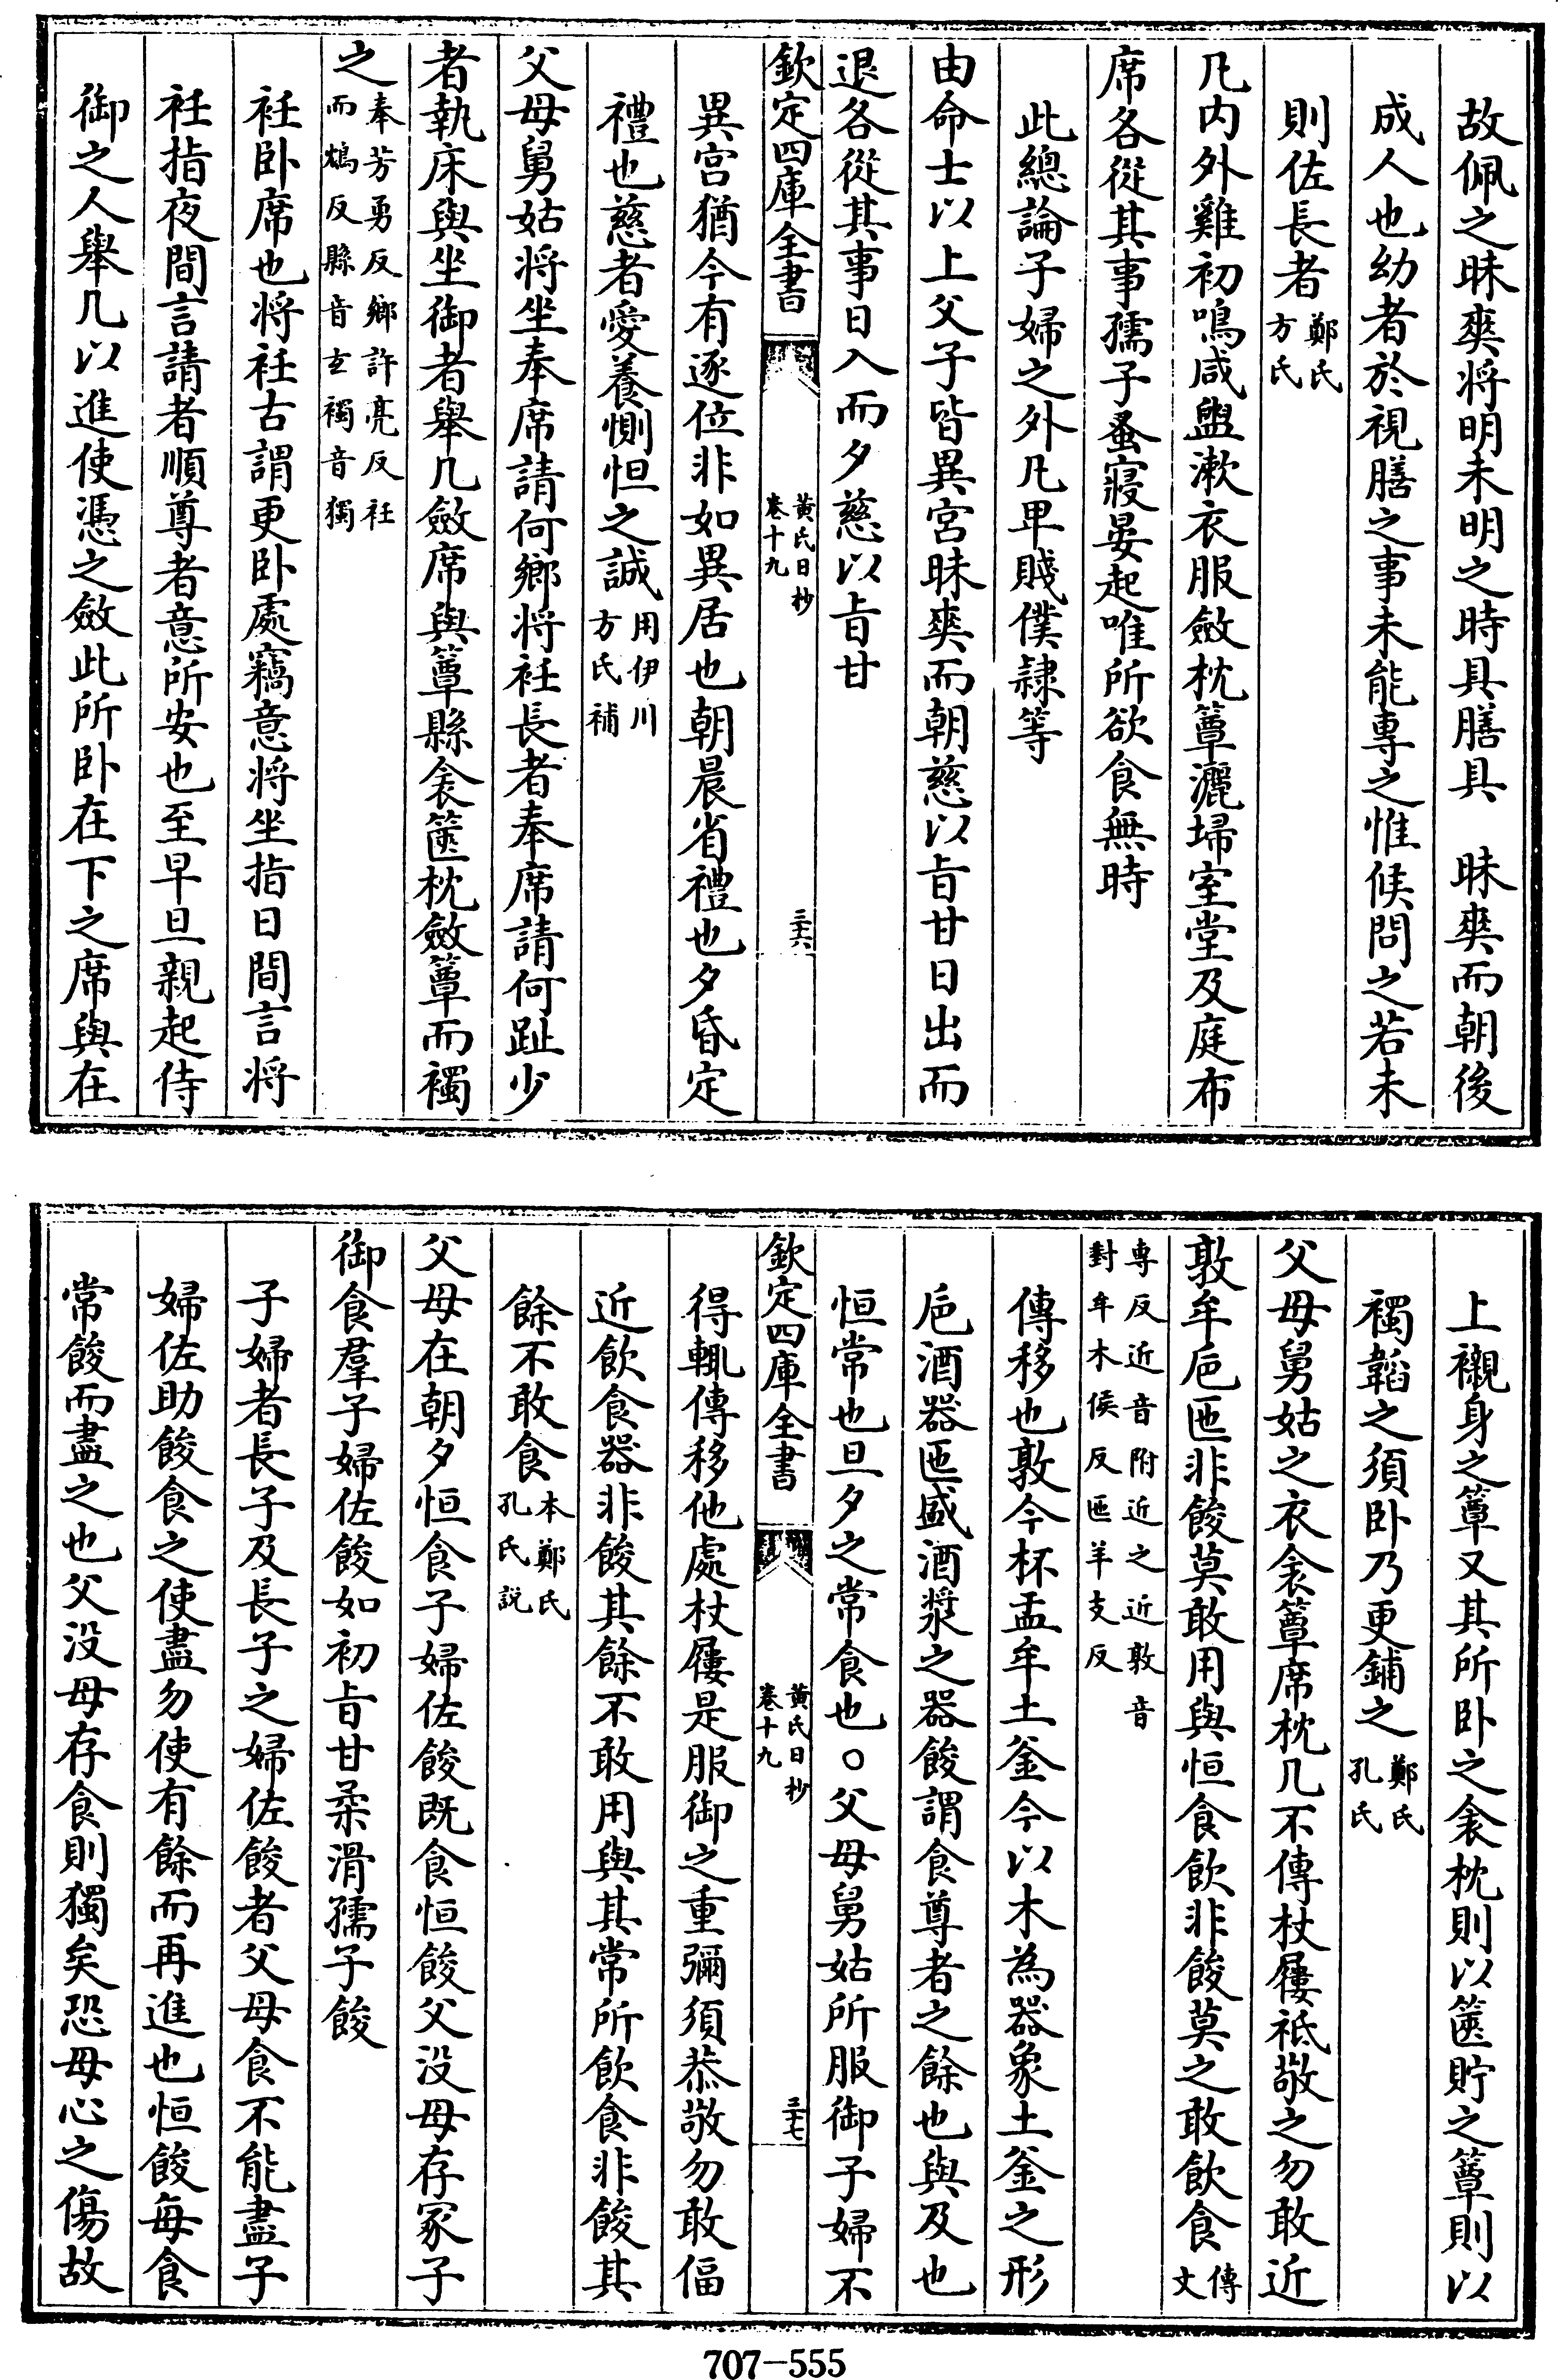 故佩之昧爽将明未明之時具膳具　昧爽而朝後
成人也幼者於視膳之事未能專之惟候問之若未
則佐長者鄭氏方氏
凡内外雞初鳴咸盥漱衣服斂枕簟灑埽室堂及庭布
席各從其事孺子蚤寢晏起唯所欲食無時
此總論子婦之外凡卑賤僕隷等
由命士以上父子皆異宮昧爽而朝慈以旨甘日出而
退各從其事日入而夕慈以旨甘
欽定四庫全書　黄氏日抄卷十九　三十六
異宫猶今有逐位非如異居也朝晨省禮也夕昏定
禮也慈者愛養惻怛之誠用伊川方氏補
父母舅姑将坐奉席請何鄉将衽長者奉席請何趾少
者執床與坐御者舉几斂席與簟縣衾篋枕斂簟而襡
之奉芳勇反鄉許亮反衽而鴆反縣音玄襡音獨
衽卧席也将衽古謂更卧處竊意将坐指日間言将
衽指夜間言請者順尊者意所安也至早旦親起侍
御之人舉几以進使憑之斂此所卧在下之席與在
上襯身之簟又其所卧之衾枕則以篋貯之簟則以
襡韜之須卧乃更鋪之鄭氏孔氏
父母舅姑之衣衾簟席枕几不傳杖屨祗敬之勿敢近
敦牟巵匜非餕莫敢用與恒食飲非餕莫之敢飲食傳文
専反近音附近之近敦音對牟木侯反匜羊支反
傳移也敦今杯盂牟土釜今以木為器象土釜之形
巵酒器匜盛酒漿之器餕謂食尊者之餘也與及也
恒常也旦夕之常食也○父母舅姑所服御子婦不
欽定四庫全書　黄氏日抄卷十九　三十七
得輒傳移他處杖屨是服御之重彌須恭敬勿敢偪
近飲食器非餕其餘不敢用與其常所飲食非餕其
餘不敢食本鄭氏孔氏説
父母在朝夕恒食子婦佐餕既食恒餕父没母存冢子
御食羣子婦佐餕如初旨甘柔滑孺子餕
子婦者長子及長子之婦佐餕者父母食不能盡子
婦佐助餕食之使盡勿使有餘而再進也恒餕每食
常餕而盡之也父没母存食則獨矣恐母心之傷故
707-555